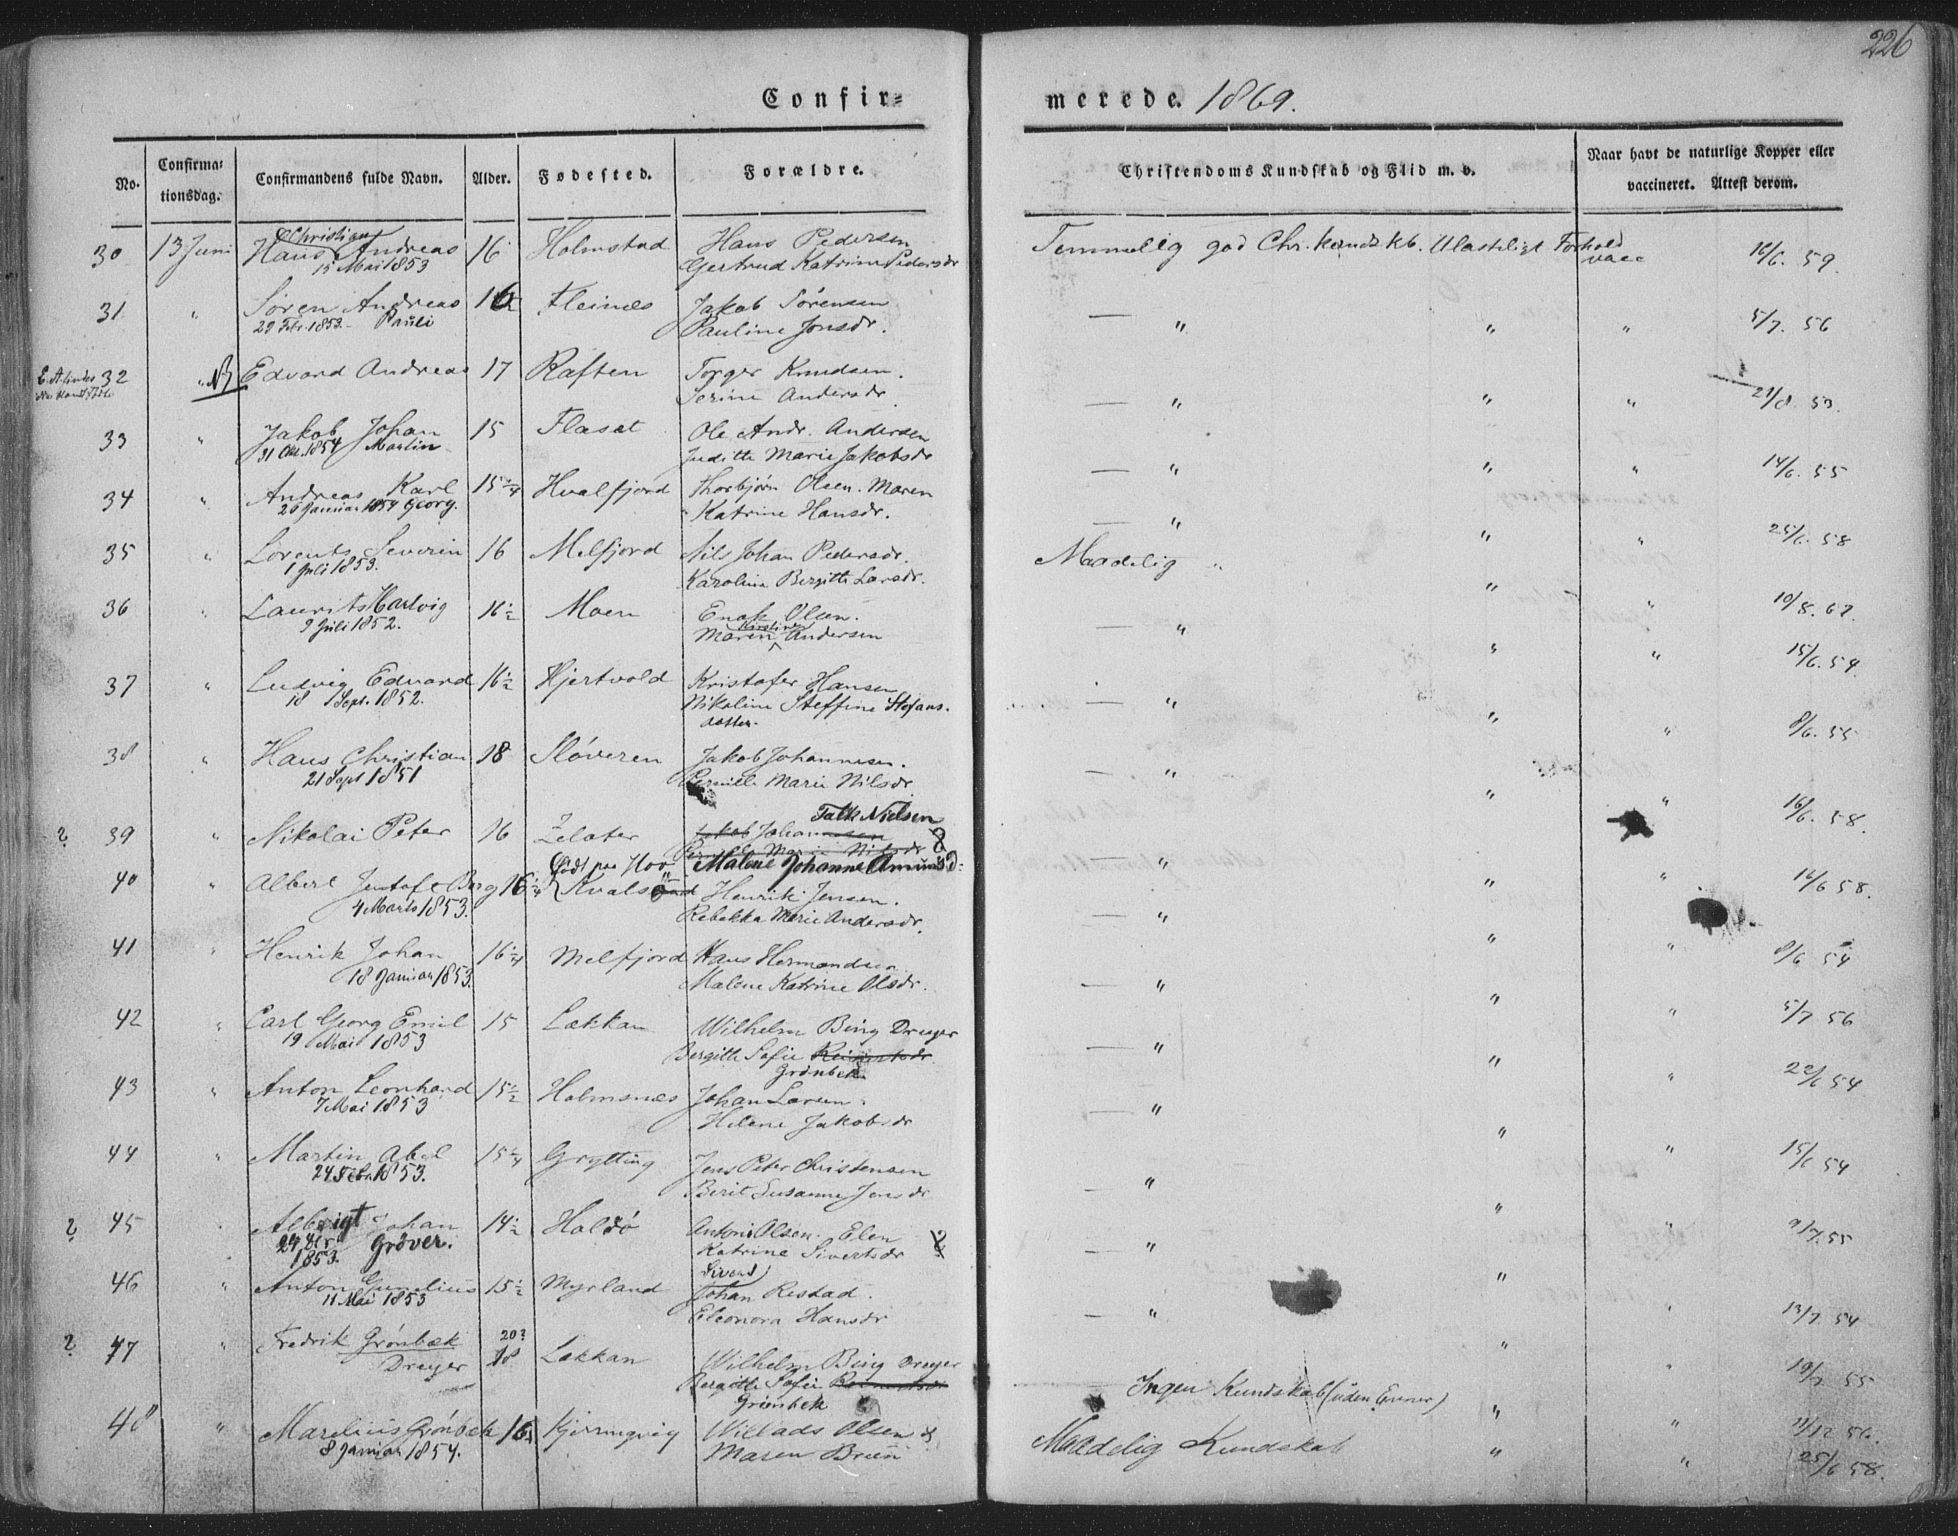 226
Confir=
merede. 1869.
No.
Confirma=
tionsdag.
Confirmandens fulde Navn.
Alder.
Fødested.
Forældre.
Christendoms Kundskab og Flid m. v.
Naar havt de naturlige Kopper eller
vaccineret. Attest derom.
Christian
30 13 Juni Hans Andreas 16 Holmstad Hans Pedersen Temmelig god Chr. kundskb. Ulasteligt Forhold vacc 16/6. 59.
15 Mai 1853 Gertrud Katrine Pedersdr
31 " Søren Andreas 16 Fleinæs Jakob Sørensen — " " " 5/7. 56
29 Febr. 1852. Pauli Pauline Jonsdr.
32 " NB Edvard Andreas 17 Raften Torger Knudsen. — " " " 21/8. 53.
Serine Andersdr.
33 " Jakob Johan 15 Flaset Ole Andr. Andersen — " " " 14/6. 55
31 Okt. 1854 Martin Judith Marie Jakobsdr
34 " Andreas Karl 15 1/4 Hvalfjord Thorbjørn Olsen. Maren — " " " 25/6. 58
26 Januar 1854 Georg. Katrine Hansdr.
35 " Lorents Severin 16 Melfjord Nils Johan Pedersdr. Maadelig " " " 10/8. 67.
1 Juli 1853. Karolina Bergitte Larsdr.
36 " Laurits Hartvig 16 1/2 Moen Enok Olsen. — " " " 15/6. 54.
9 Juli 1852. Maren Kirstine Andersen
37 " Ludvig Edvard 16 1/2 Hjertvold Kristofer Hansen — " " " 8/6. 55
18 Sept. 1852. Nikoline Steffine Stefans-
datter.
38 " Hans Christian 18 Sløveren Jakob Johannesen. — " " " 16/6. 58.
21 Sept 1851 Pernille Marie Nilsdr.
Falk Nielsen
? 39 " Nikolai Peter 16 Jakob Johannesen — " " " 16/6 58.
Pernille Marie Nilsdr
Født paa Hov Malene Johanne Amunds D.
40 " Albert Jentoft Berg 16 1/4 Kvalsund Henrik Jensen. — " " " 8/6 54
4 Marts 1853. Rebekka Marie Andersdr.
41 " Henrik Johan 16 1/4 Melfjord Hans Hermandsen — " " " 5/7 56
18 Januar 1853. Malene Katrine Olsdr.
42 " Carl Georg Emil 15 Lækkan Wilhelm Bing Dreyer — " " " 22/6 54
19 Mai 1853 Bergitte Sofie Reinertsdr.
Grønbek
43 " Anton Leonhard 15 1/2 Holmsnæs Johan Larsen. — " " " 15/6 54
7 Mai 1853 Helene Jakobsdr
44 " Martin Abel 15 1/4 Grytting Jens Peter Christensen — " " " 9/7. 55
24 Febr. 1853. Berit Susanne Jensdr
? 45 Albrigt Johan 14 1/2 Haldø Anton Olsen. Elen — " " " 13/7. 54
Grøver. Katrine Sivertsdr
1853.
Sivert
46 " Anton Cornelius 15 1/2 Myrland Johan Restad. — " " " 19/7 55
11 Mai 1853 Eleonora Hansdr
20?
? 47 " Fredrik Grønbæk 18 Lækkan Wilhelm Bing Dreyer Ingen Kundskab (uden Evner) " " 11/12 56.
Dreyer Bergitte Sofie Reinertsdr
Grønbek
48 " Marelius Grønbek 15 Kjerringvig Willads Olsen & Maadelig Kundskab " " 25/6 58.
8 Januar 1854. Maren Bruun